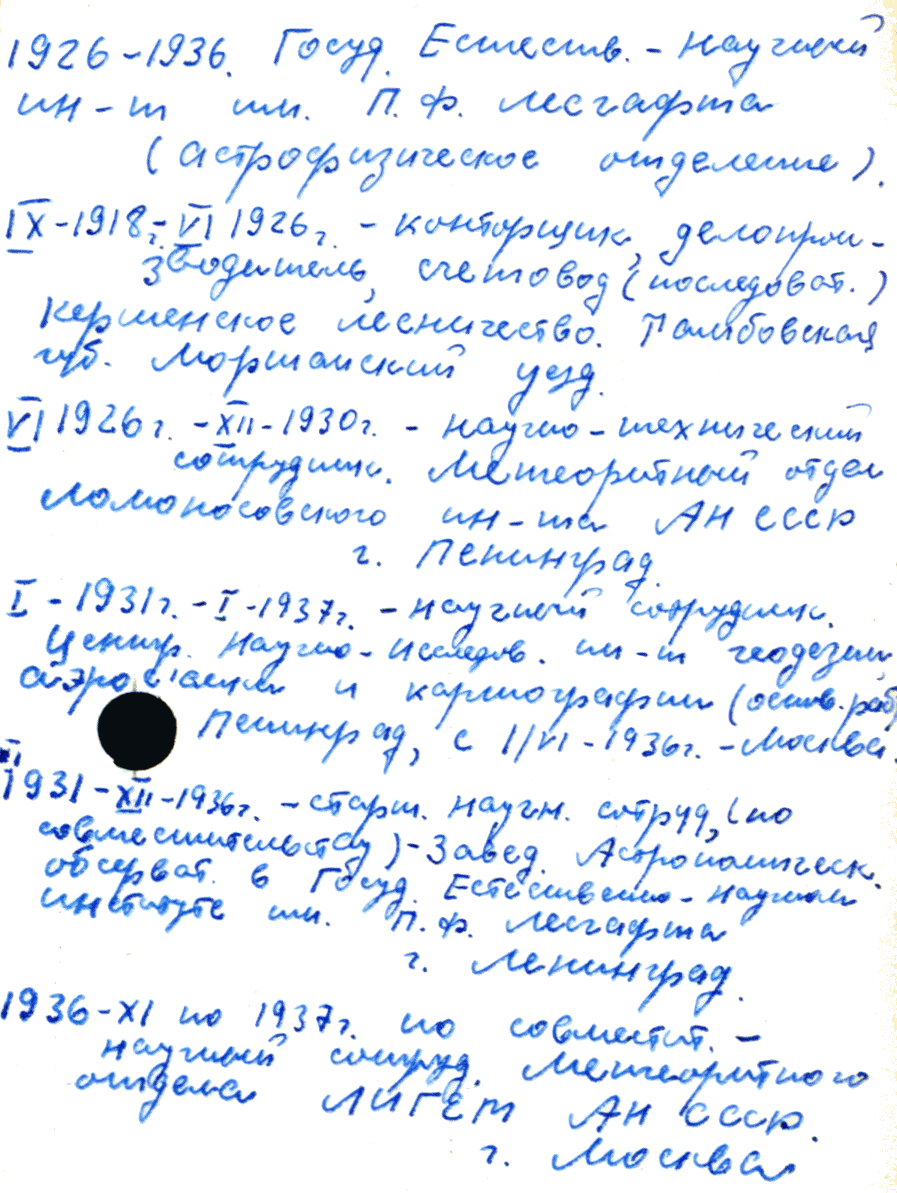 1926-1936. Госуд. Естеств.-научный
ин-т им. П.Ф. Лесгафта
(астрофизическое отделение).
IX-1918г.-VI 1926г. - конторщик, делопрои-
зводитель, счетовод (последоват.)
Кершенское лесничество. Тамбовская
губ. Моршанский уезд.
VI 1926г. -XII-1930г. - научно-технический
сотрудник. Метеоритный отдел
Ломоносовского ин-та АН СССР
г. Ленинград.
I-1931г.-I-1937г. - научный сотрудник.
Центр. Научно-исследов. ин-т геодезии
аэросъемки и картографии (основ. раб
Ленинград, с 1/VI-1936г. - Москва.
XI
1931-XII-1936г. - старш. научн. сотруд, (по
совместительству) - Завед. Астрономическ.
обсерват. в Госуд. Естественно-научном
институте им. П.Ф. Лесгафта
г. Ленинград.
1936-XI по 1937г. по совместит. -
научный сотруд. Метеоритного
отдела ЛИГЕМ АН СССР.
г. Москва